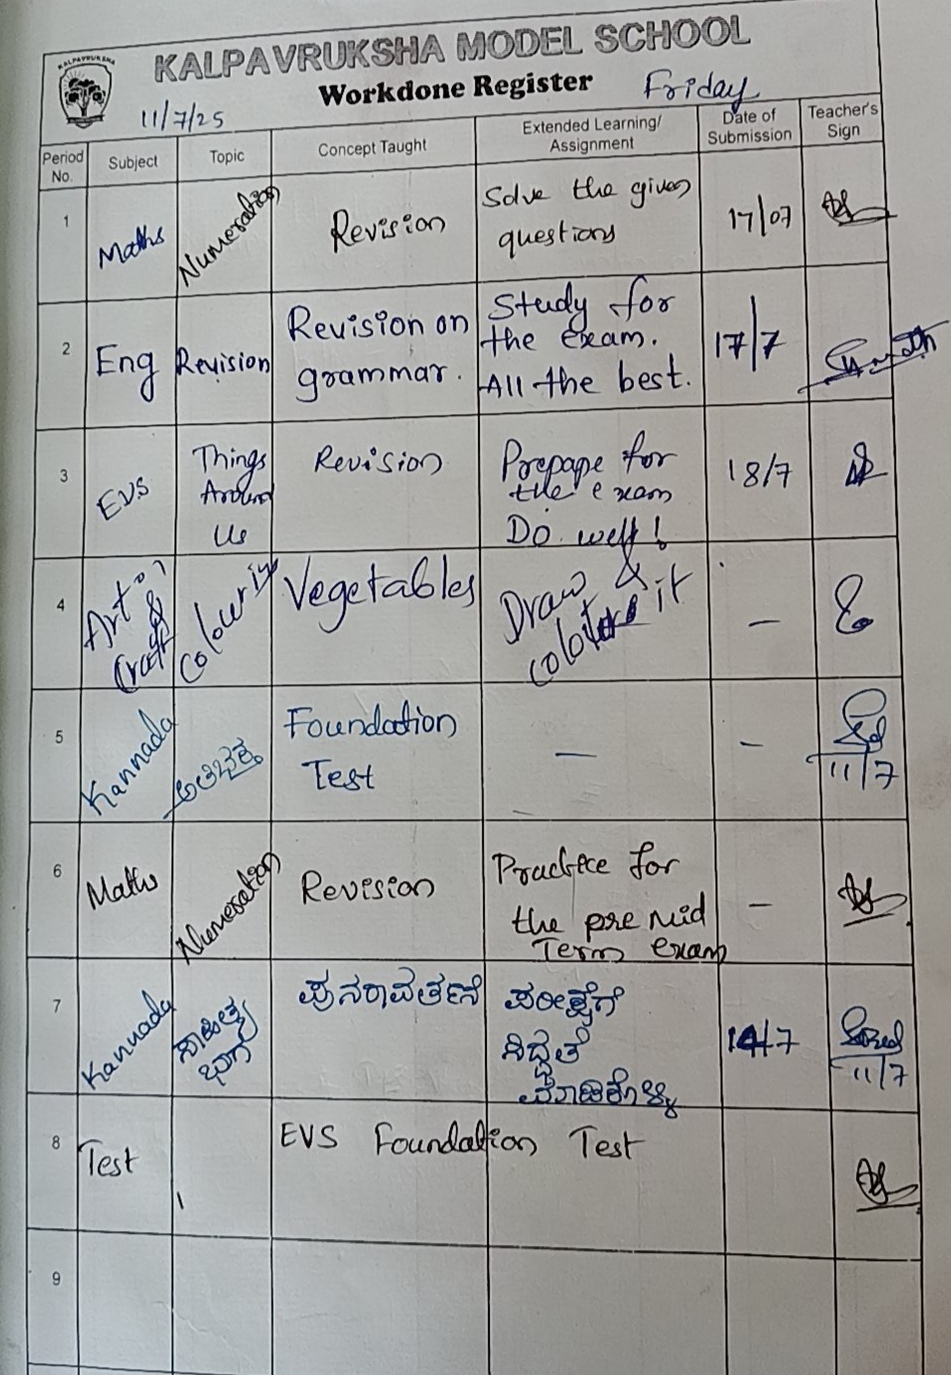 KALPAVRUKSHA
KALPAVRUKSHA MODEL SCHOOL
Workdone Register
Friday
11/7/25
Period No.
Subject
Topic
Concept Taught
Extended Learning/ Assignment
Date of Submission
Teacher's Sign
1
Maths
Numeration
Revision
Solve the given
questions
17/07
2
Eng
Revision
Revision on
grammar.
Study for
the exam.
All the best.
17/7
3
EVS
Things
Around
Us
Revision
Prepape for
the exam
Do well!
18/7
4
Art &
Craft
Colouring
Vegetables
Draw &
colour it
—
5
Kannada
Foundation
Test
—
—
11/7
6
Maths
Numeration
Revision
Practice for
the pre Mid
Term exam
—
7
Kannada
ಸಾಹಿತ್ಯ
ಭಾಗ
ಪುನರಾವರ್ತನೆ
ಪರೀಕ್ಷೆಗೆ
ಸಿದ್ಧತೆ
ಮಾಡಿಕೊಳ್ಳಿ
14/7
11/7
8
Test
EVS Foundation Test
9